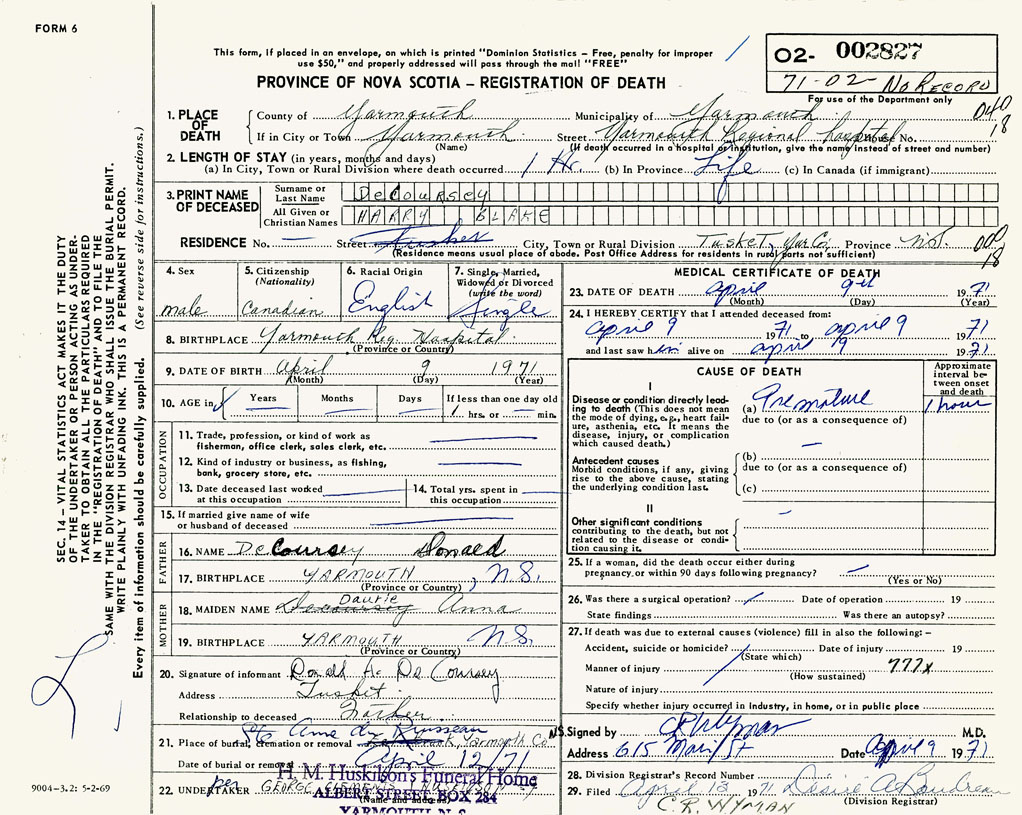 FORM 6
This form, if placed in an envelope, on which is printed "Dominion Statistics – Free, penalty for improper
use $50," and properly addressed will pass through the mail "FREE"
PROVINCE OF NOVA SCOTIA – REGISTRATION OF DEATH
02- 002827
71-02 No Record
For use of the Department only
1. PLACE OF DEATH
County of Yarmouth Municipality of Yarmouth
If in City or Town Yarmouth Street Yarmouth Regional Hospital House No.
(Name) (If death occurred in a hospital or institution, give the name instead of street and number)
2. LENGTH OF STAY (in years, months and days)
(a) In City, Town or Rural Division where death occurred 1 Hr. (b) In Province Life (c) In Canada (if immigrant)
3. PRINT NAME OF DECEASED
Surname or Last Name DeCOURSEY
All Given or Christian Names HARRY BLAKE
RESIDENCE No. — Street Tusket City, Town or Rural Division TUSKET, Yar Co. Province N.S.
(Residence means usual place of abode. Post Office Address for residents in rural parts not sufficient)
4. Sex male
5. Citizenship (Nationality) Canadian
6. Racial Origin English
7. Single, Married, Widowed or Divorced (write the word) Single
8. BIRTHPLACE Yarmouth Reg. Hospital
(Province or Country)
9. DATE OF BIRTH April 9 1971
(Month) (Day) (Year)
10. AGE in Years Months Days If less than one day old
1 hrs. or — min.
OCCUPATION
11. Trade, profession, or kind of work as
fisherman, office clerk, sales clerk, etc.
12. Kind of industry or business, as fishing,
bank, grocery store, etc.
13. Date deceased last worked
at this occupation
14. Total yrs. spent in
this occupation
15. If married give name of wife
or husband of deceased
FATHER
16. NAME DeCoursey Donald
17. BIRTHPLACE YARMOUTH, N.S.
(Province or Country)
MOTHER
18. MAIDEN NAME Decoursey Anna
19. BIRTHPLACE YARMOUTH N.S.
(Province or Country)
20. Signature of informant Donald A. De Coursey
Address Tusket
Relationship to deceased Father
Ste Anne du Ruisseau
21. Place of burial, cremation or removal Yarmouth Co N.S.
Date of burial or removal April 12/71
22. UNDERTAKER per GEORGE
H. M. Huskilson's Funeral Home
ALBERT STREET, BOX 284
(Name and address)
YARMOUTH, N. S.
MEDICAL CERTIFICATE OF DEATH
23. DATE OF DEATH April 9th 1971
(Month) (Day) (Year)
24. I HEREBY CERTIFY that I attended deceased from:
April 9 1971 to April 9 1971
and last saw him alive on April 9 1971
CAUSE OF DEATH
Approximate interval between onset and death
I
Disease or condition directly leading to death (This does not mean the mode of dying, e.g., heart failure, asthenia, etc. It means the disease, injury, or complication which caused death.)
(a) Premature 1 hour
due to (or as a consequence of)
Antecedent causes
Morbid conditions, if any, giving rise to the above cause, stating the underlying condition last.
(b)
due to (or as a consequence of)
(c)
II
Other significant conditions
contributing to the death, but not related to the disease or condition causing it.
25. If a woman, did the death occur either during
pregnancy, or within 90 days following pregnancy? —
(Yes or No)
26. Was there a surgical operation? — Date of operation 19
State findings Was there an autopsy?
27. If death was due to external causes (violence) fill in also the following: –
Accident, suicide or homicide? Date of injury 19
(State which)
Manner of injury 777x
(How sustained)
Nature of injury
Specify whether injury occurred in industry, in home, or in public place
Signed by CR Wyman M.D.
Address 615 Main St Date April 9 1971
28. Division Registrar's Record Number
29. Filed April 13 1971 Desire A Boudreau
C.R. WYMAN (Division Registrar)
SEC. 14 – VITAL STATISTICS ACT MAKES IT THE DUTY
OF THE UNDERTAKER OR PERSON ACTING AS UNDER-
TAKER TO OBTAIN ALL THE PARTICULARS REQUIRED
IN THE "REGISTRATION OF DEATH" AND TO FILE THE
SAME WITH THE DIVISION REGISTRAR WHO SHALL ISSUE THE BURIAL PERMIT.
WRITE PLAINLY WITH UNFADING INK. THIS IS A PERMANENT RECORD.
Every item of information should be carefully supplied. (See reverse side for instructions.)
9004-3.2: 5-2-69